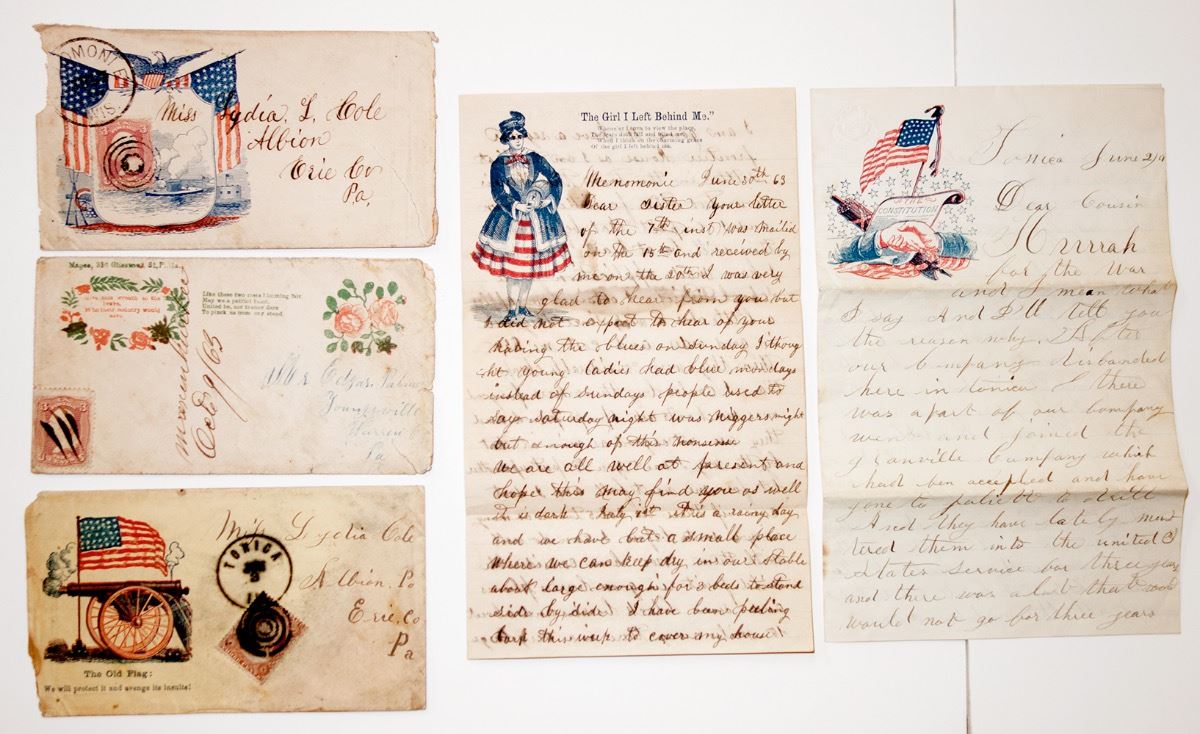 OMONIE
WIS.
Miss Lydia L. Cole
Albion
Erie Co
Pa.
Magee, 316 Chestnut St, Phila.
Like these two roses blooming fair,
May we a patriot band,
United be, nor traitor dare
To pluck us from our stand.
Menomonie
Oct 9/63
Edgar
Youngsville
Warren
Pa
TONICA
Miss Lydia Cole
Albion. Po
Erie, Co
Pa
The Old Flag:
We will protect it and avenge its insults!
The Girl I Left Behind Me."
to view the place,
The tears doth fall and blind me,
When I think on the charming grace
Of the girl I left behind me.
Menomonie June 30th 63
Dear Sister Your letter
of the 7th inst was mailed
on the 15th and received by
me on the 20th I was very
glad to hear from you but
I did not expect to hear of your
having the blues on Sunday I thoug
ht young ladies had blue mondays
instead of sundays people used to
say saturday night was niggers night
but enough of this nonsense
we are all well at present and
hope this may find you as well
It is dark July 1st it is a rainy day
and we have but a small place
where we can keep dry in our stable
about large enough for 3 beds to stand
side by side I have been peeling
barp this week to cover my house
THE
CONSTITUTION
Tonica June
Dear Cousin
Hurrrah
for the War
and I mean what
I say And I'll tell you
the reason why. After
our Company disbanded
here in tonica there
was apart of our Company
went and joined the
granville Company which
had ben accepted and have
gone to to drill
And they have lately mus
tered them into the united
states service for three years
and there was a lot that
would not go for three years